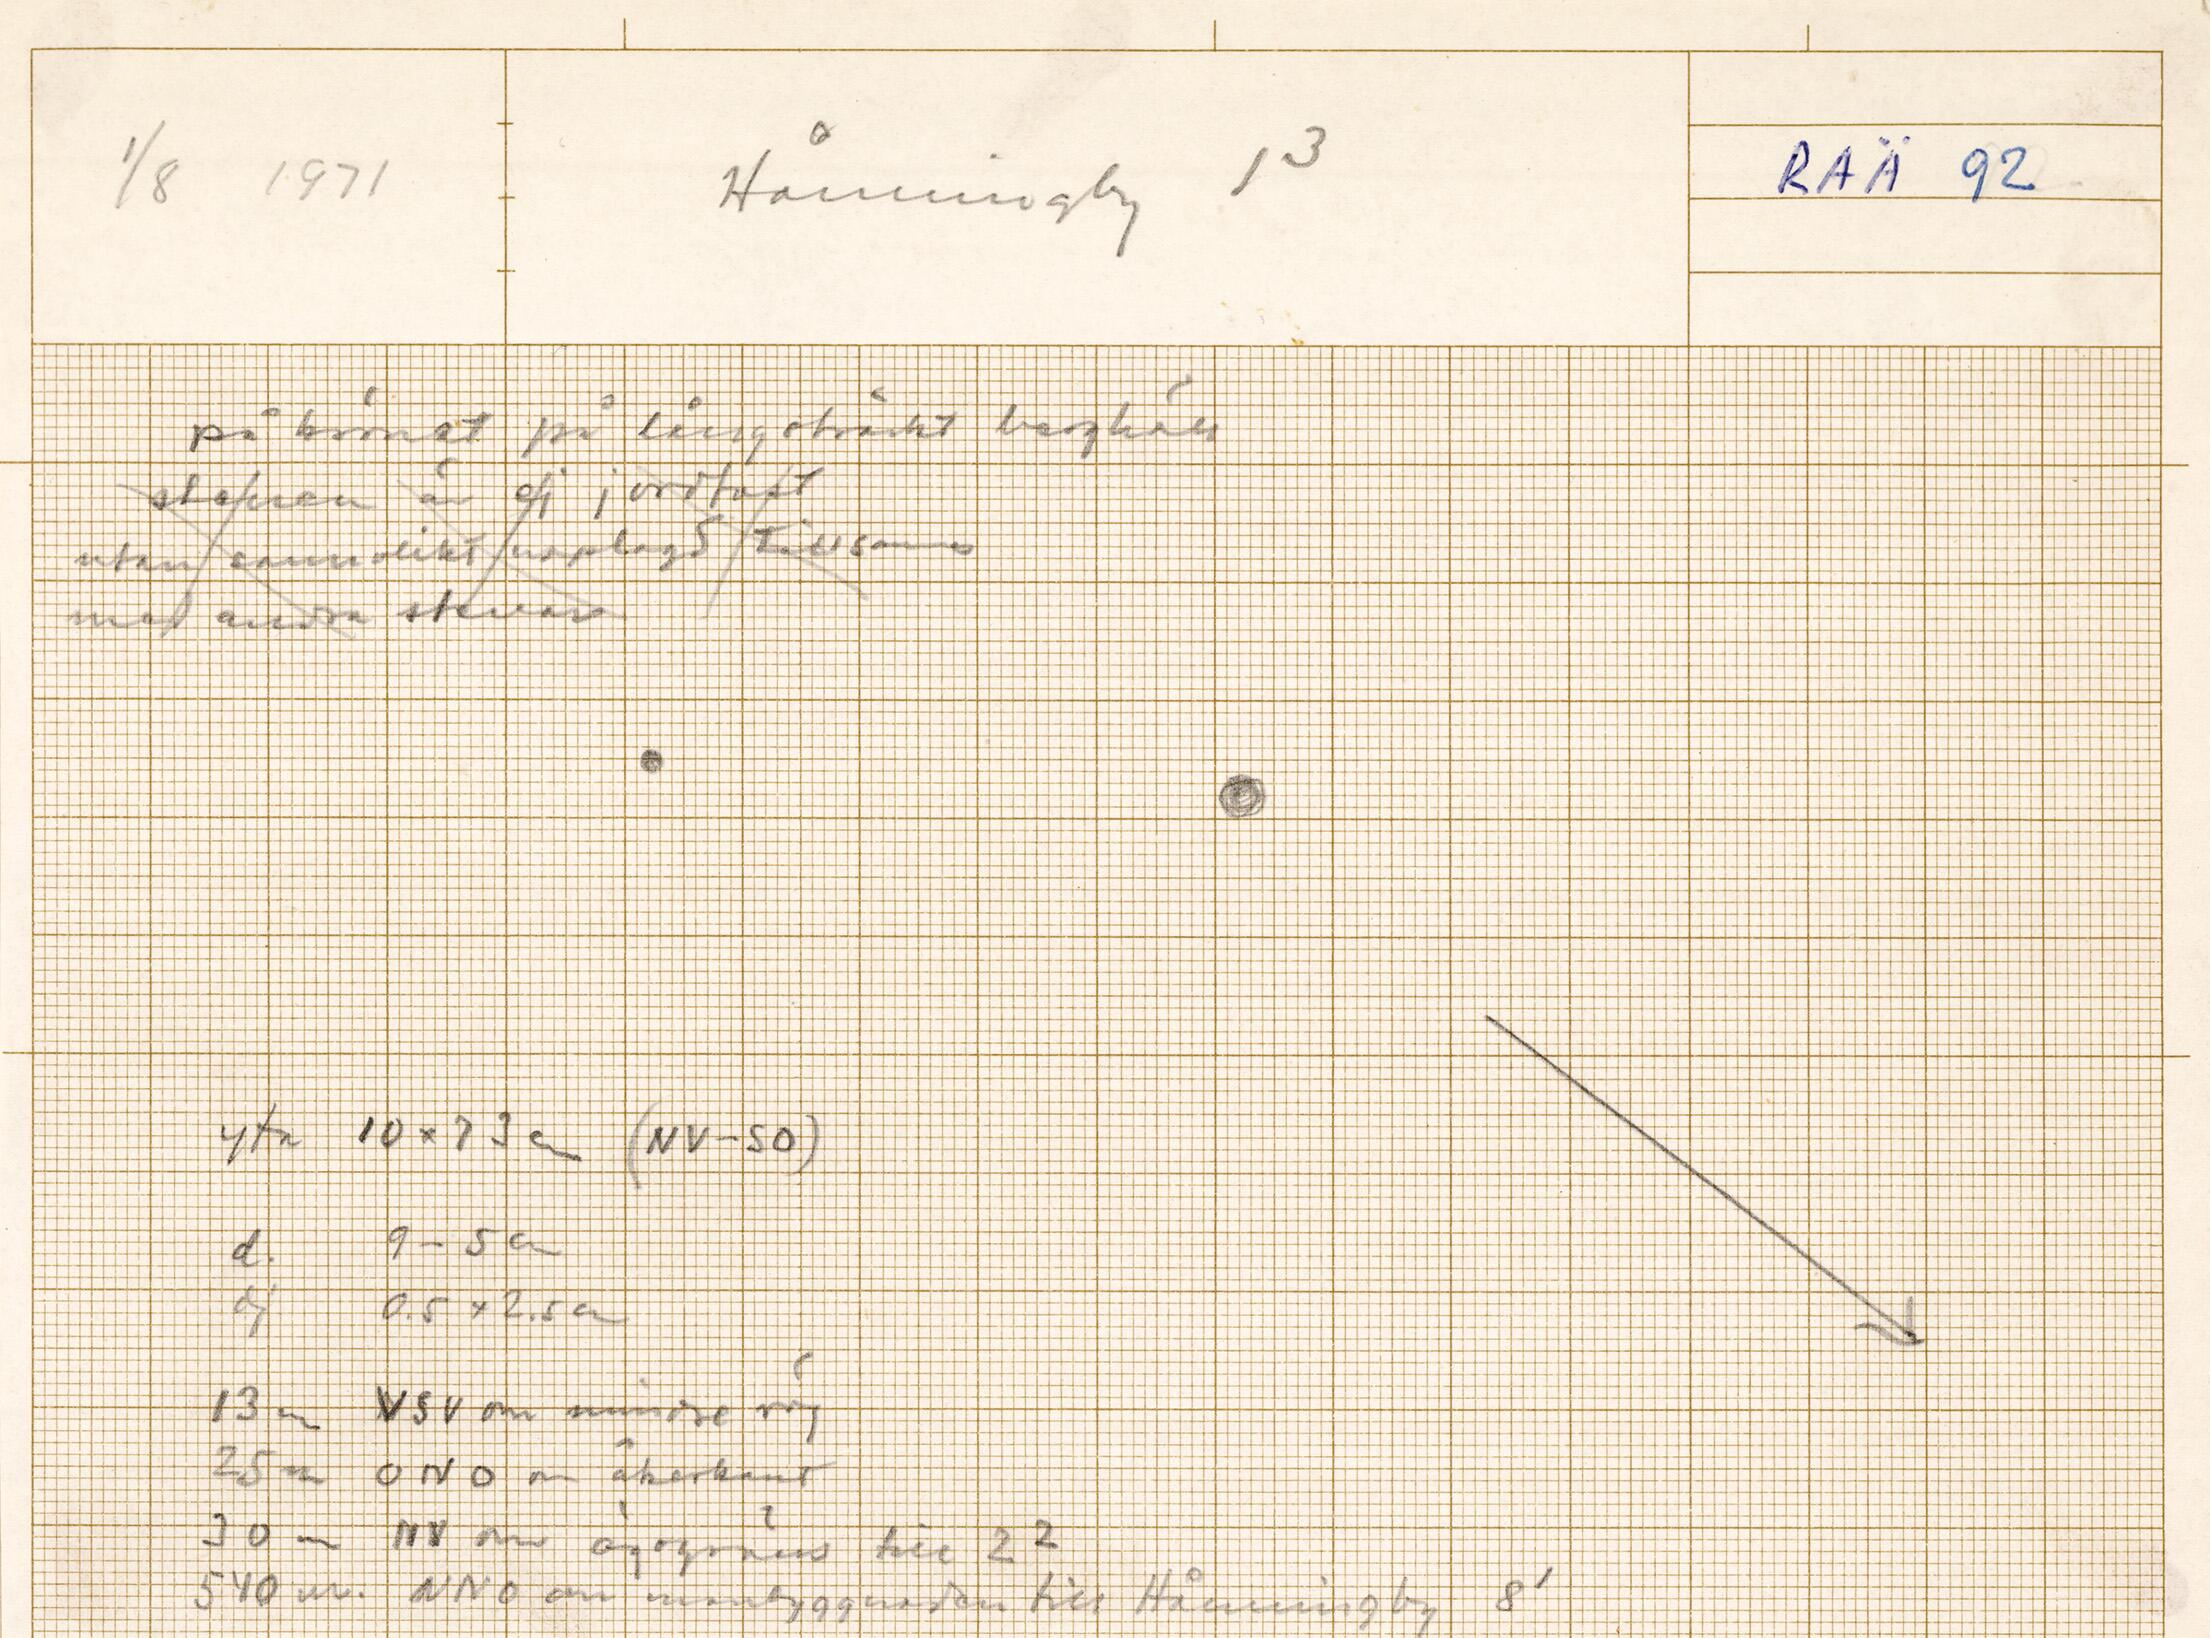 1/8 1971
Hånningby 1³
RAÄ 92
på krönet på långsträckt berghäll
stenen är ej jordfast
utan sannolikt upplagd tillsammans
med andra stenar
yta 10 × 73 cm (NV-SO)
d. 9 - 5 cm
dj 0.5 × 2.5 cm
13 m VSV om mindre väg
25 m ONO om åkerkant
30 m NV om ägogräns till 2²
540 m. NNO om manbyggnaden till Hånningby 8¹